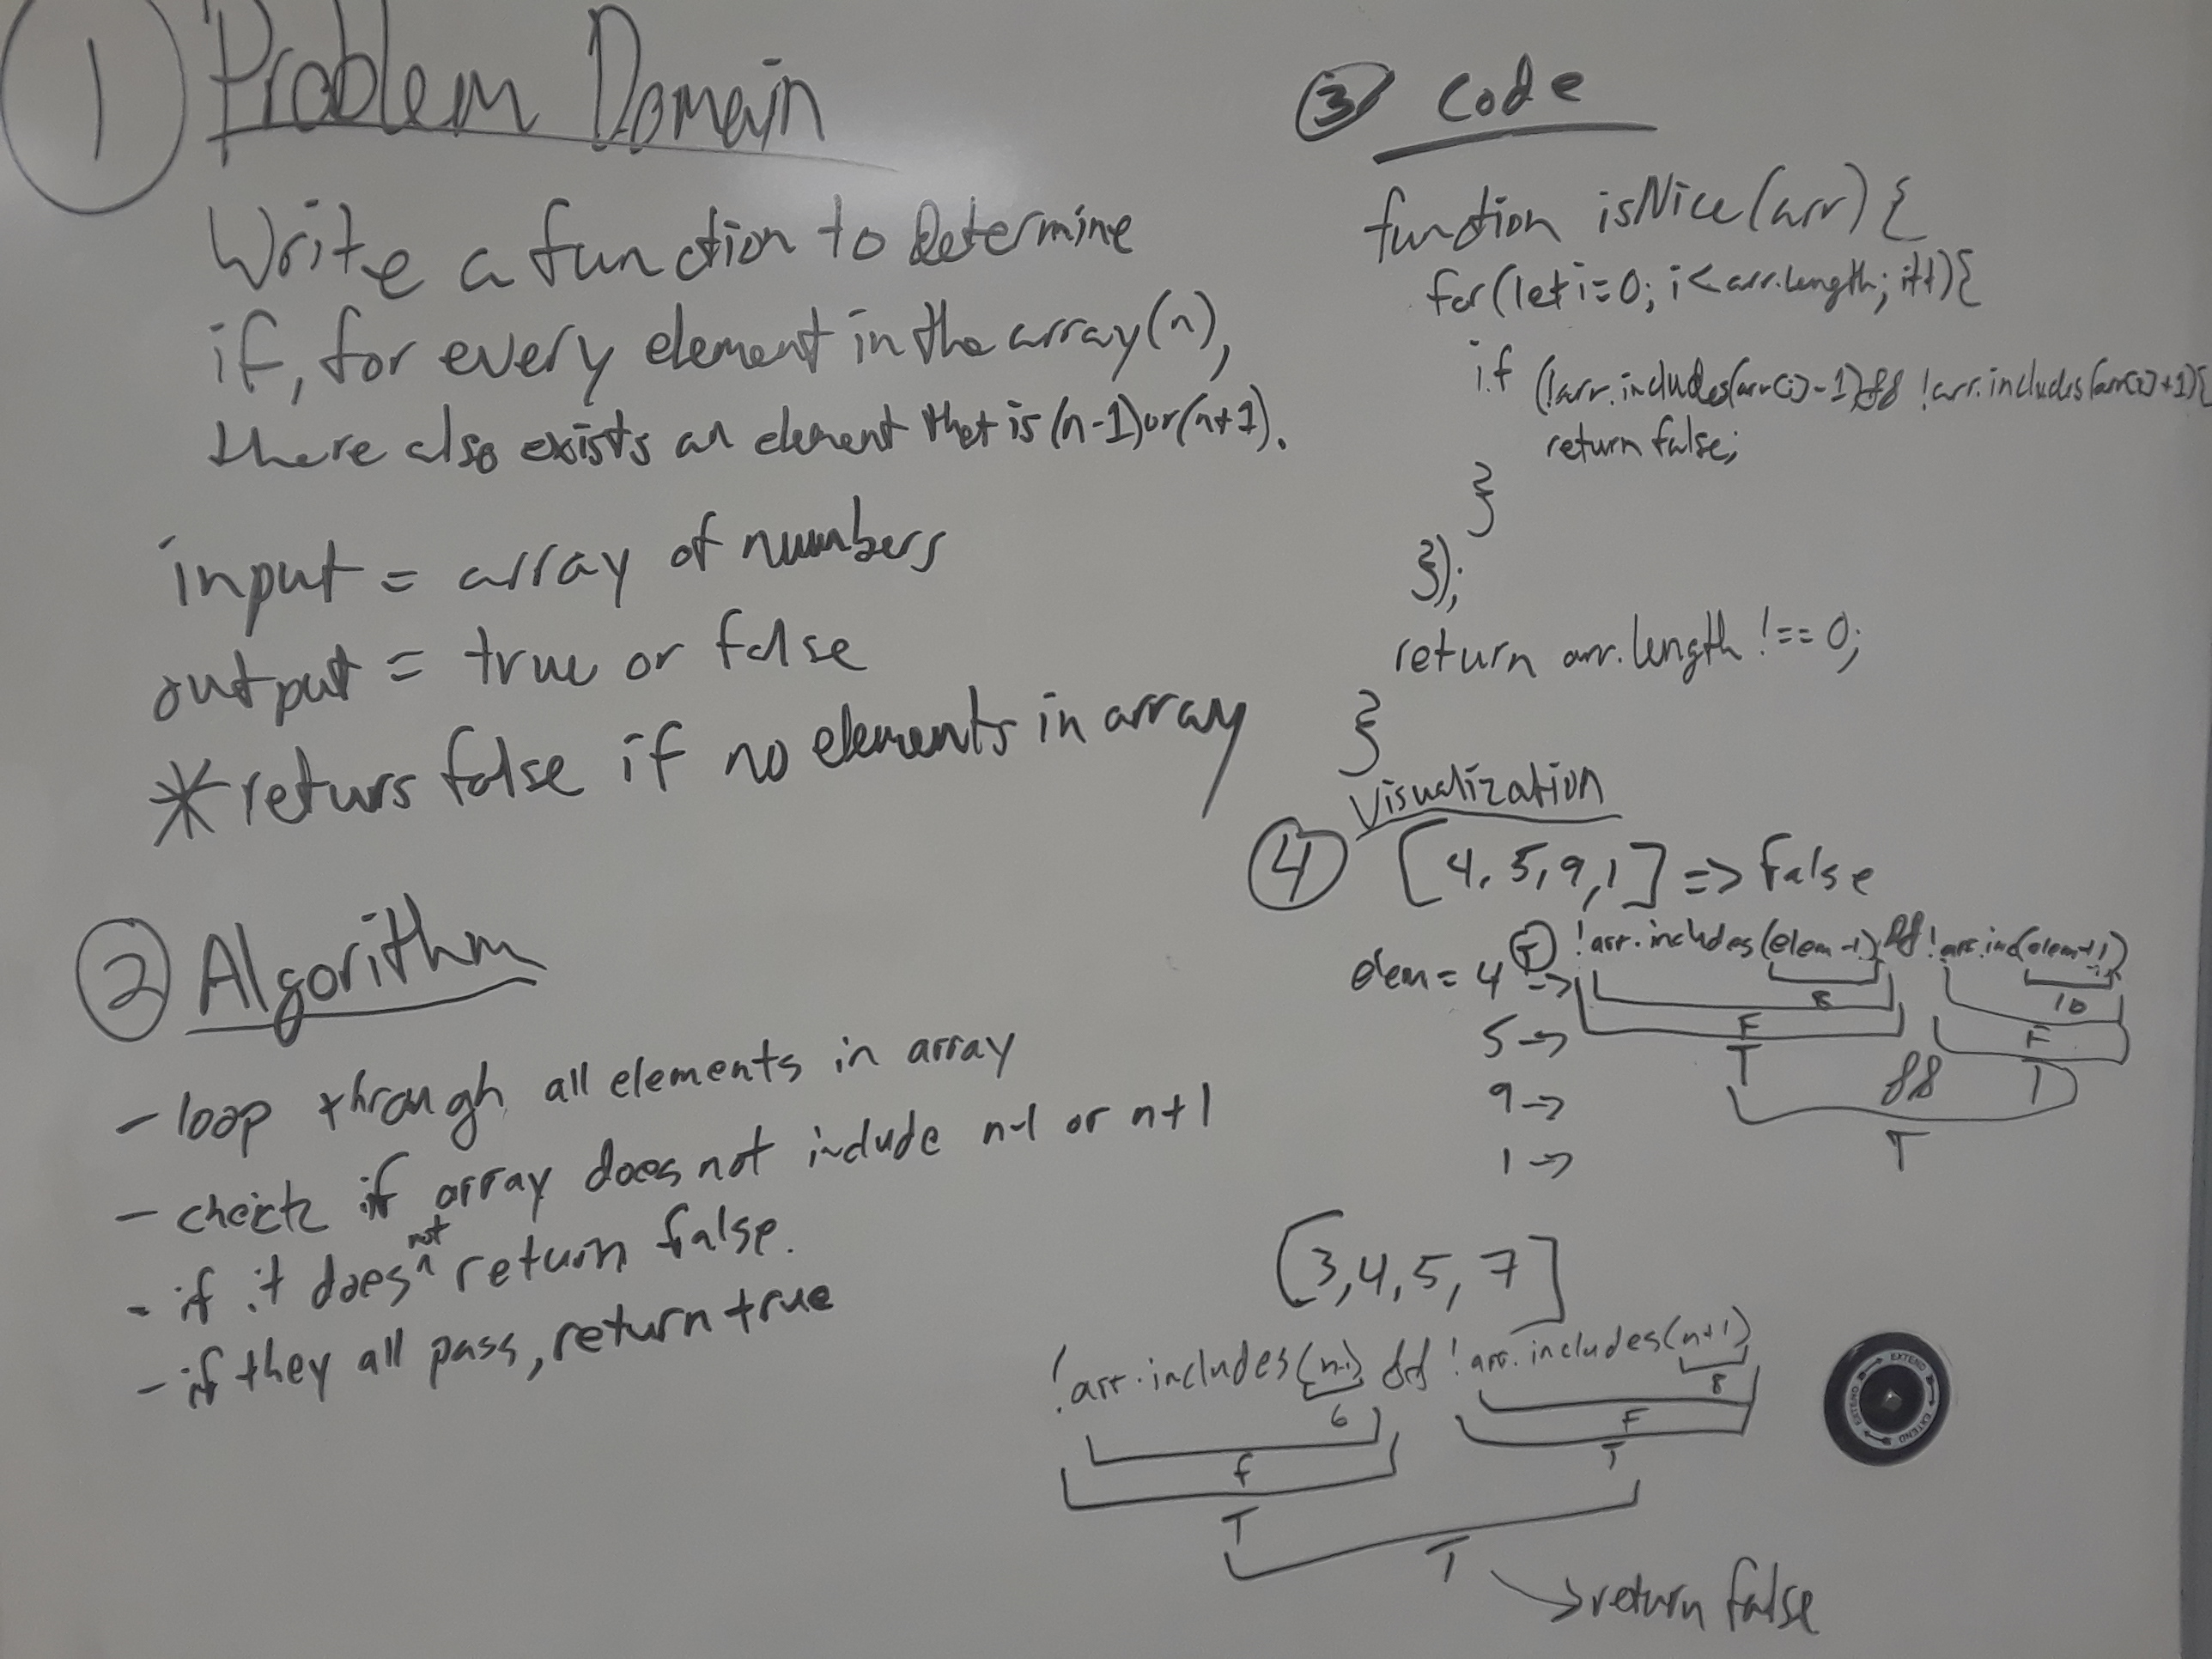 1 Problem Domain
Write a function to Determine
if, for every element in the array (n),
there also exists an element that is (n-1) or (n+1).
input = array of numbers
output = true or false
*returs false if no elements in array
2 Algorithm
- loop through all elements in array
- check if array does not include n-1 or n+1
- if it does not return false.
- if they all pass, return true
3 Code
function isNice(arr) {
for(let i=0; i<arr.length; i++){
if (!arr.includes(arr[i]-1) && !arr.includes(arr[i]+1){
return false;
}
});
return arr.length !== 0;
}
Visualization
4 [4, 5, 9, 1] => false
elem = 4 T -> !arr.includes(elem-1) && !arr.inc(elem+1)
8 10
5 -> F F
T && T
9 ->
T
1 ->
[3, 4, 5, 7]
!arr.includes(n-1) && !arr.includes(n+1)
6 8
f F
T T
T
-> return false
EXTEND EXTEND EXTEND EXTEND